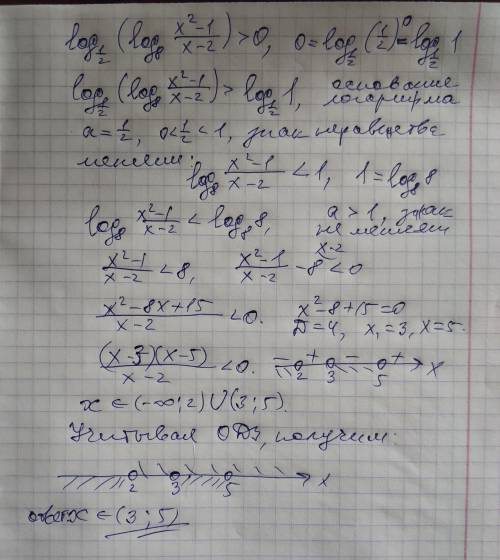 log_{1/2} (log_8 \frac{x²-1}{x-2}) > 0, 0 = log_{1/2} (1/2)^0 = log_{1/2} 1
log_{1/2} (log_8 \frac{x²-1}{x-2}) > log_{1/2} 1, основание логарифма
a = 1/2, 0 < 1/2 < 1, знак неравенства
меняем: log_8 \frac{x²-1}{x-2} < 1, 1 = log_8 8
log_8 \frac{x²-1}{x-2} < log_8 8, a > 1, знак не меняем
\frac{x²-1}{x-2} < 8, \frac{x²-1}{x-2} - 8 < 0
\frac{x²-8x+15}{x-2} < 0. x²-8+15=0
D=4, x₁=3, x=5.
\frac{(x-3)(x-5)}{x-2} < 0. - + - + 2 3 5 x
x ∈ (-∞; 2) ∪ (3; 5).
Учитывая ОДЗ, получим:
2 3 5 x
ответ: x ∈ (3; 5)